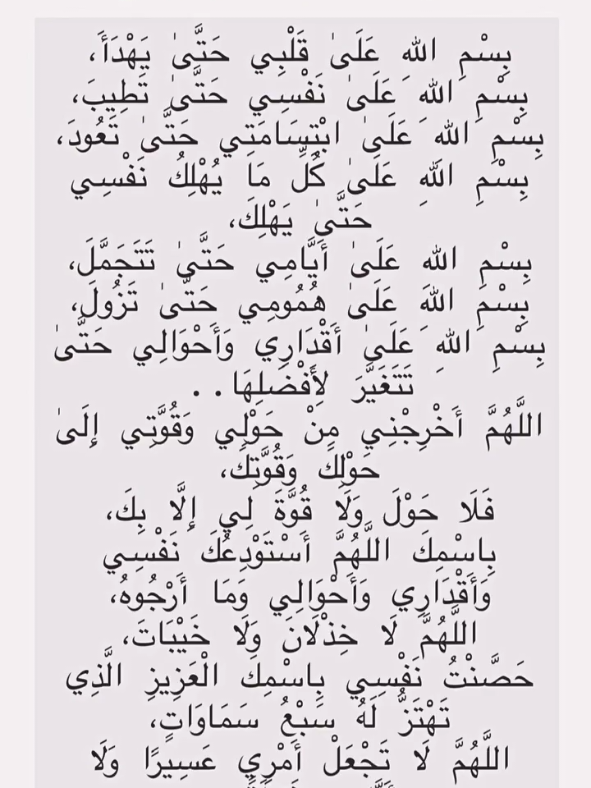 بِسْمِ اللهِ عَلَىٰ قَلْبِي حَتَّىٰ يَهْدَأَ،
بِسْمِ اللهِ عَلَىٰ نَفْسِي حَتَّىٰ تَطِيبَ،
بِسْمِ اللهِ عَلَىٰ ابْتِسَامَتِي حَتَّىٰ تَعُودَ،
بِسْمِ اللهِ عَلَىٰ كُلِّ مَا يُهْلِكُ نَفْسِي
حَتَّىٰ يَهْلِكَ،
بِسْمِ اللهِ عَلَىٰ أَيَّامِي حَتَّىٰ تَتَجَمَّلَ،
بِسْمِ اللهِ عَلَىٰ هُمُومِي حَتَّىٰ تَزُولَ،
بِسْمِ اللهِ عَلَىٰ أَقْدَارِي وَأَحْوَالِي حَتَّىٰ
تَتَغَيَّرَ لِأَفْضَلِهَا..
اللَّهُمَّ أَخْرِجْنِي مِنْ حَوْلِي وَقُوَّتِي إِلَىٰ
حَوْلِكَ وَقُوَّتِكَ،
فَلَا حَوْلَ وَلَا قُوَّةَ لِي إِلَّا بِكَ،
بِاسْمِكَ اللَّهُمَّ أَسْتَوْدِعُكَ نَفْسِي
وَأَقْدَارِي وَأَحْوَالِي وَمَا أَرْجُوهُ،
اللَّهُمَّ لَا خِذْلَانَ وَلَا خَيْبَاتَ،
حَصَّنْتُ نَفْسِي بِاسْمِكَ الْعَزِيزِ الَّذِي
تَهْتَزُّ لَهُ سَبْعُ سَمَاوَاتٍ،
اللَّهُمَّ لَا تَجْعَلْ أَمْرِي عَسِيرًا وَلَا